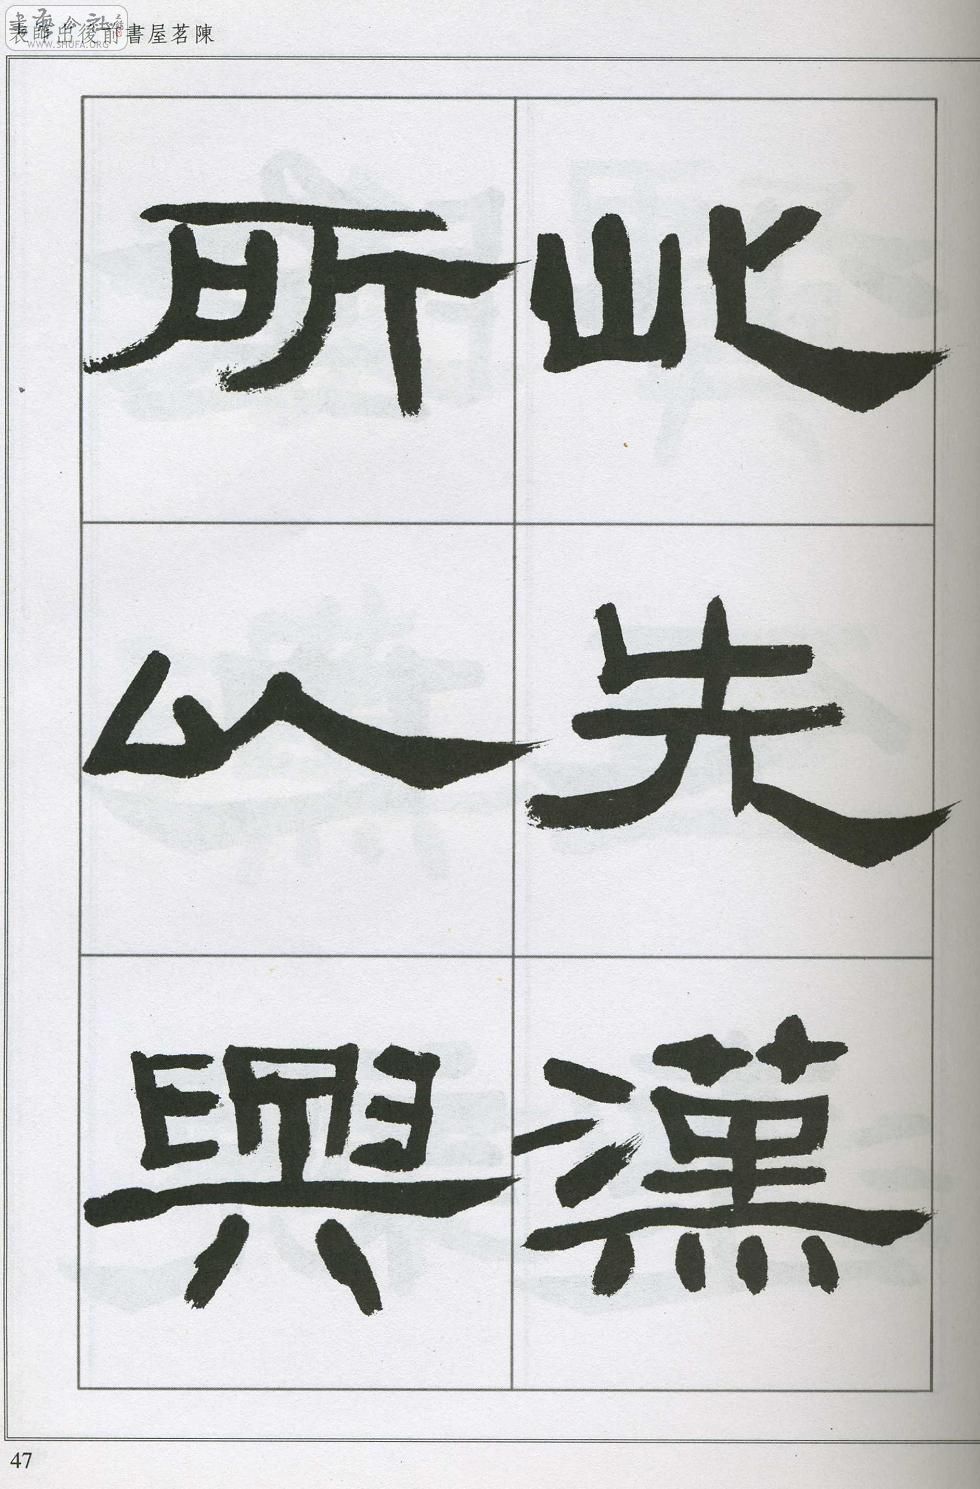 陳茗屋書前後出師表
書法公社
WWW.SHUFA.ORG
此先漢
所以興
47